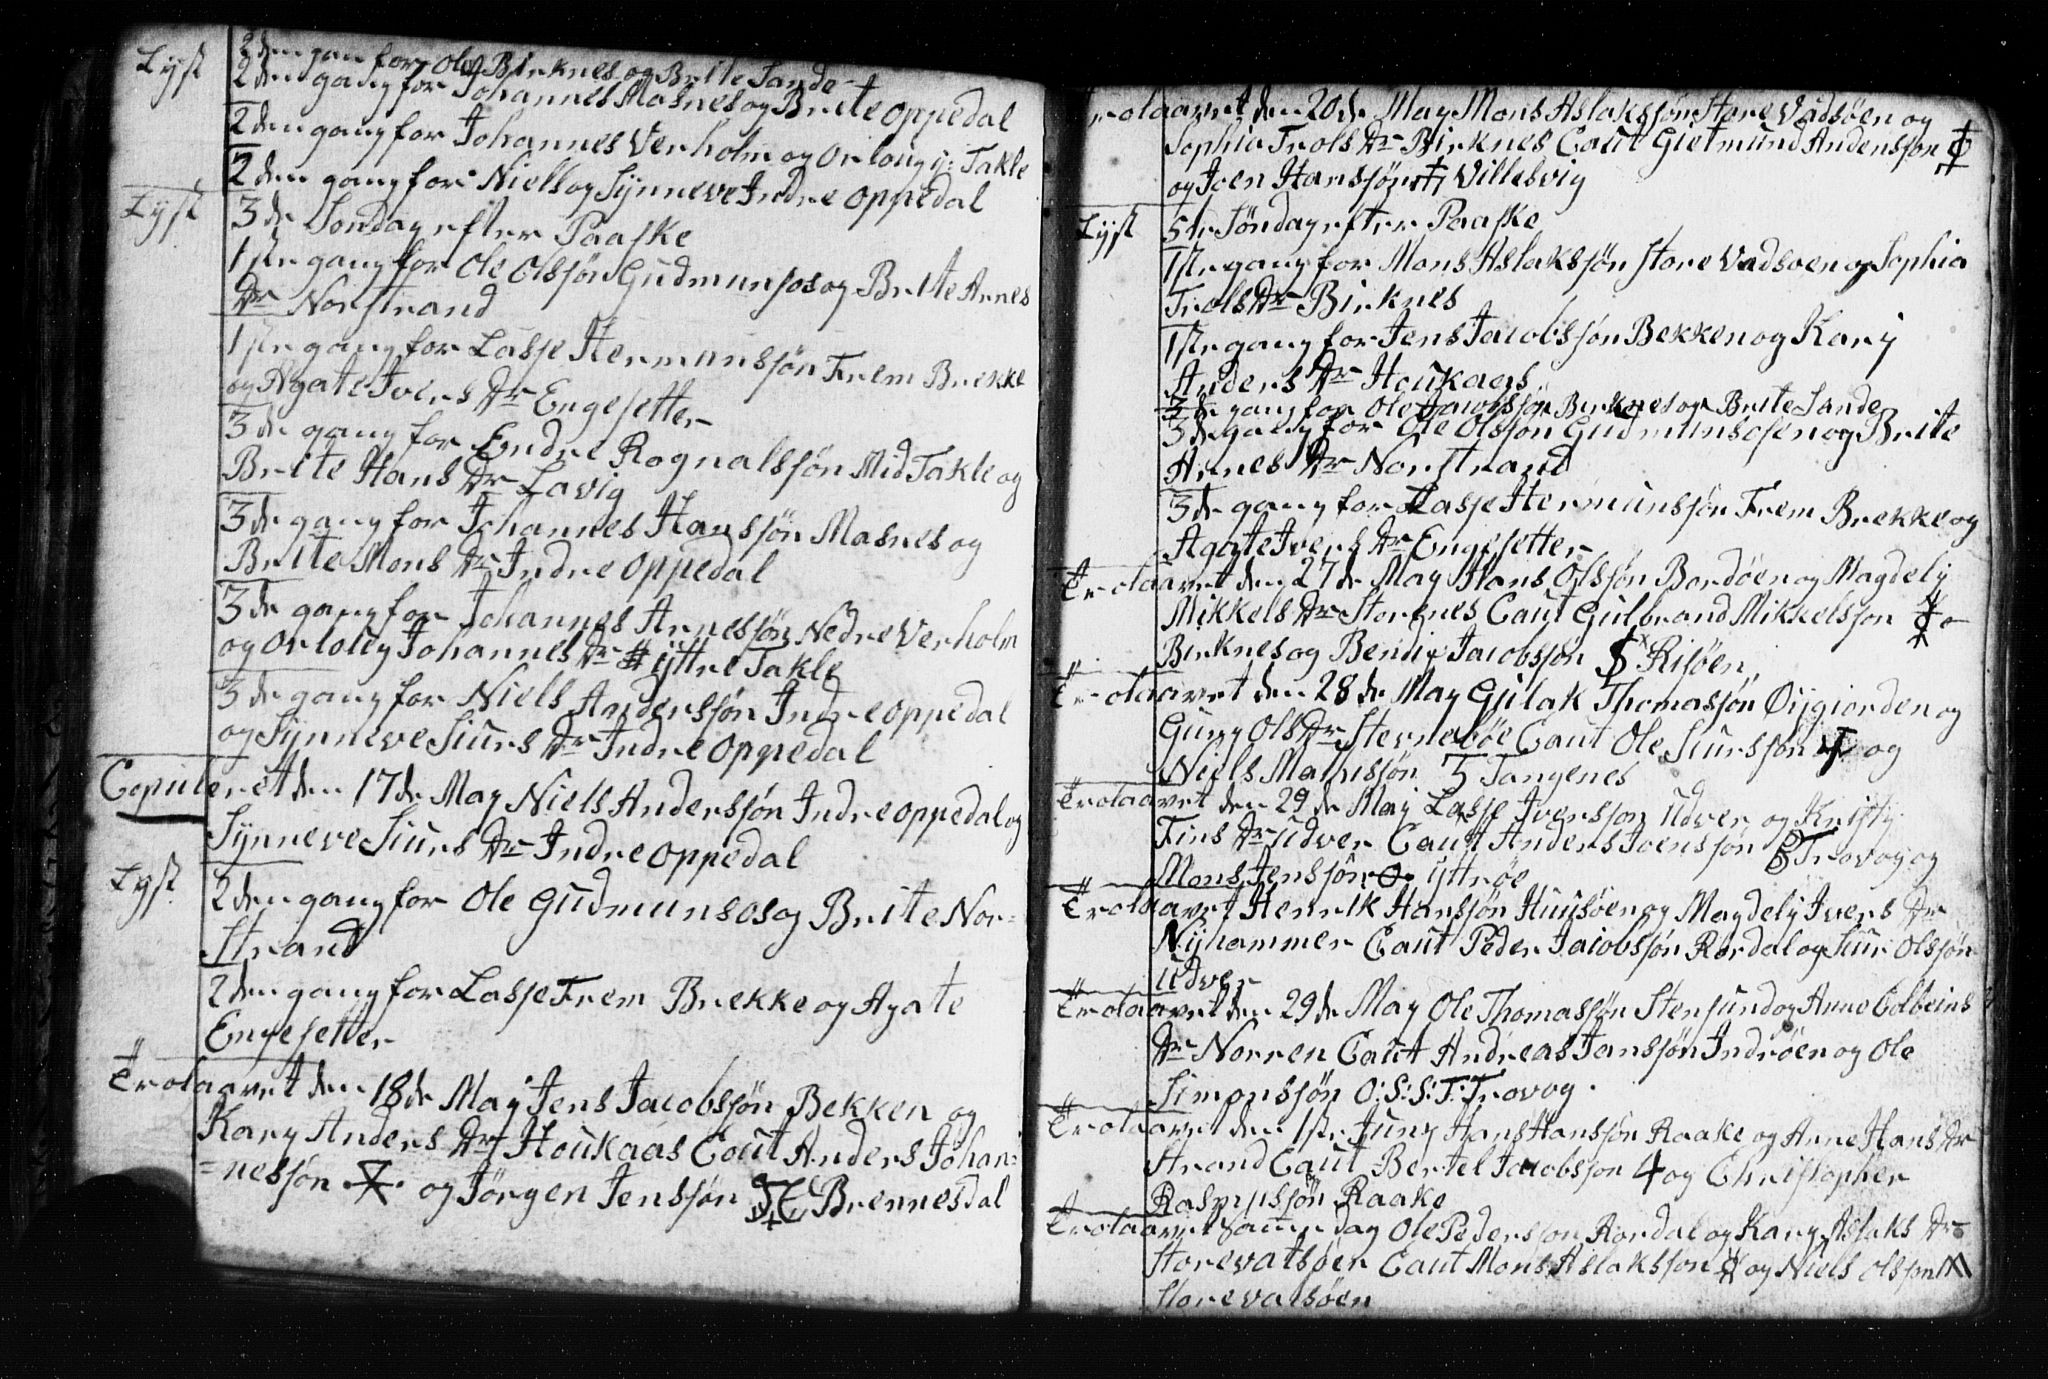 Lyst 2den gan for Ole Birknes og Brite Sande
2den gang for Johannes Masnes og Brite Oppedal
2den gang for Johannes Verholm og Orloug ij: Takle
2den gang for Niels og Synneve Indre Oppedal
Lyst 3de Søndag efter Paaske
1ste gang for Ole Olssøn Gudmunsos og Brite Arnes
Dr Norstrand
1ste gang for Lasse Hermanssøn Frem Brekke
og Agate Ivers Dr Engesetter
3de gang for Endre Rognalssøn Mid Takle og
Brite Hans Dr Lavig
3de gang for Johannes Hanssøn Masnes og
Brite Mons Dr Indre Oppedal
3de gang for Johannes Arnessøn Nedre Verholm
og Orloug Johannes Dr yttre Takle
3de gang for Niels Anderssøn Indre Oppedal
og Synneve Siurs Dr Indre Oppedal
Copuleret den 17de May Niels Anderssøn Indre Oppedal og
Synneve Siurs Dr Indre Oppedal
Lyst 2den gang for Ole Gudmunsos og Brite Nor=
strand
2den gang for Lasse Frem Brekke og Agate
Engesetter
Trolaavet den 18de May Jens Jacobssøn Bekken og
Kary Anders Dr Houkaas Caut Anders Johan=
=nessøn og Jørgen Jenssøn Brennesdal
Trolaavet den 20de May Mons Aslakssøn Store Vadsøen og
Sophia Trols Dr Birknes Caut Gietmund Anderssøn
og Joen Hanssøn Villesvig
Lyst 5te Søndag efter Paaske
1ste gang for Mons Aslakssøn store Vadsøen og Sophia
Trols Dr Birknes
1ste gang for Jens Jacobssøn Bekken og Kary
Anders Dr Houkaas
3de gang for Ole Jacobssøn Birknes og Brite Sande
3de gang for Ole Olssøn Gudmunsosen og Brite
Arnes Dr Norstrand
3de gang for Lasse Hermunssøn Frem Brekke og
Agate Ivers Dr Engesetter
Trolaavet den 27de May Hans Olssøn Bordøen og Magdely
Mikkels Dr Storenes Caut Gulbrand Mikkelssøn
Birknes og Bendix Jacobssøn Risøen
Trolaavet den 28de May Gulak Thomassøn Øygiorden og
Guny Ols Dr Sternebøe Caut Ole Siurssøn og
Niels Mathissøn Tangenes
Trolaavet den 29de May Lasse Iverssøn Udver og Kristy
Fins Dr Udver Caut Anders Joenssøn Trovog og
Mons Jenssøn yttrøe
Trolaavet Henrik Hanssøn Huusøen og Magdely Ivers Dr
Nyhammer Caut Peder Jacobssøn Rordal og Siur Olssøn
Udver
Trolaavet den 29de May Ole Thomassøn Stensund og Anne Colbeins
Dr Norren Caut Andreas Janssøn Indrøen og Ole
Simonssøn O:S:S:T: Trovog.
Trolaavet den 1ste Juny Hans Hanssøn Raake og Anne Hans Dr
Strand Caut Bertel Jacobssøn 4 og Christopher
Rasmussøn Raake
Trolaavet samme dag Ole Pederssøn Rordal og Kary Aslaks Dr
Storevatsøen Caut Mons Aslakssøn og Niels Olssøn
Storevatsøen